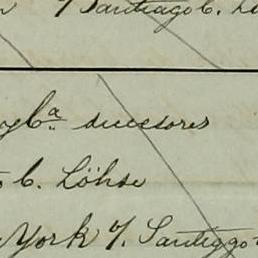 Santiago C. Lö
y Cª sucesores
C. Löhse
York y. Santiago